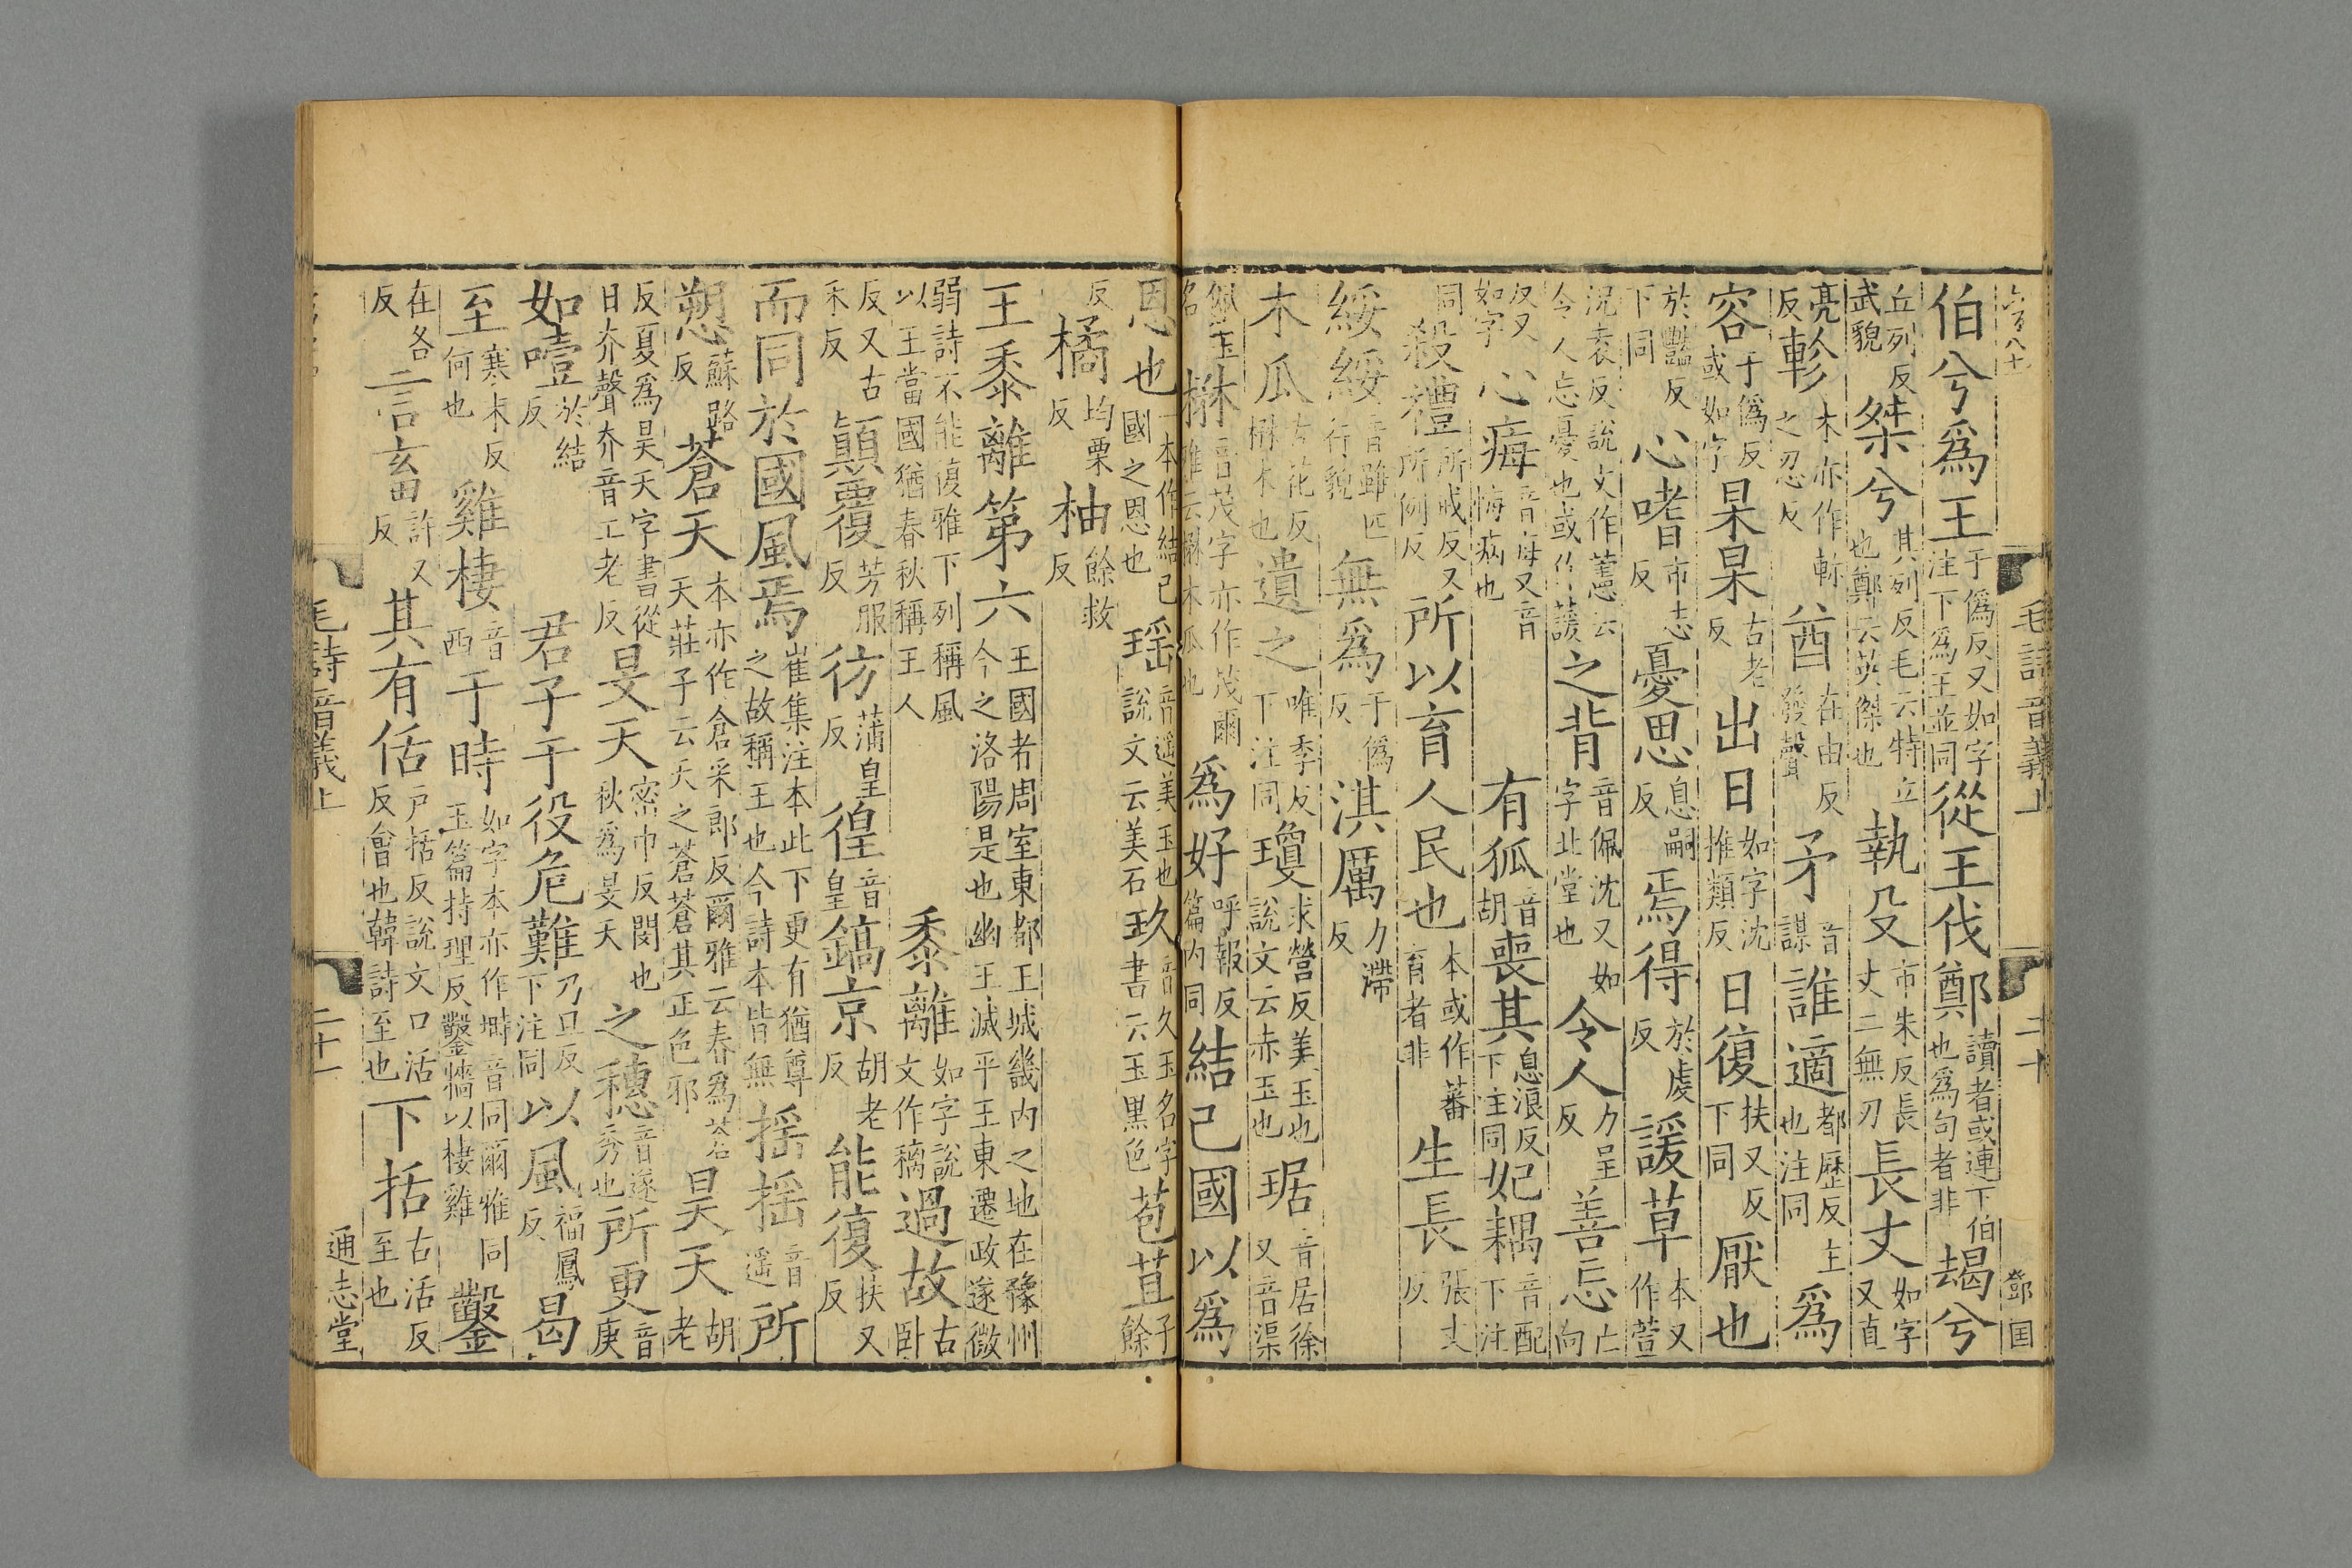 毛詩音義上 二十 鄧国
伯兮爲王于僞反又如字注下爲王並同從王伐鄭讀者或連下伯也爲句者非朅兮
丘列反武貌桀兮其列反毛云特立也鄭云英傑也執殳市朱反長丈二無刃長丈如字又直
亮反軫本亦作軫之忍反酋在由反發聲矛音謀誰適都歷反主也注同爲
容于僞反或如字杲杲古老反出日如字沈推類反日復扶又反下同厭也
於豔反下同心嗜市志反憂思息嗣反焉得於虔反諼草本又作萱
況袁反說文作藼云令人忘憂也或作蕿之背音佩沈又如字北堂也令人力呈反善忘亡向
反又如字心痗音每又音悔病也有狐音胡喪其息浪反下注同妃耦音配下注
同殺禮所戒反又所例反所以育人民也本或作蕃育者非生長張丈反
綏綏音雖匹行貌無爲于僞反淇厲力滯反
木瓜古花反楙木也遺之唯季反下注同瓊求營反美玉也說文云赤玉也琚音居徐又音渠
佩玉名楙音茂字亦作茂爾雅云楙木瓜也爲好呼報反篇内同結己國以爲
恩也一本作結己國之恩也瑶音遥美玉也說文云美石玖音久玉名字書云玉黑色苞苴子餘
反橘均栗反柚餘救反
王黍離第六王國者周室東都王城畿内之地在豫州今之洛陽是也幽王滅平王東遷政遂微
弱詩不能復雅下列稱風以王當國猶春秋稱王人黍離如字說文作穲過故古卧
反又古禾反顛覆芳服反彷蒲皇反徨音皇鎬京胡老反能復扶又反
而同於國風焉崔集注本此下更有猶尊之故稱王也今詩本皆無揺揺音遥所
愬蘇路反蒼天本亦作倉采郎反爾雅云春爲蒼天莊子云天之蒼蒼其正色邪昊天胡老
反夏爲昊天字書從日夰聲夰音工老反旻天密巾反閔也秋爲旻天之穗音遂秀也所更音庚
如噎於結反君子于役危難乃旦反下注同以風福鳳反曷
至寒末反何也雞棲音西于塒如字本亦作塒音同爾雅同玉篇持理反鑿牆以棲雞鑿
在各反言畜許又反其有佸戶括反說文口活反會也韓詩至也下括古活反至也
毛詩音義上 二十一 通志堂